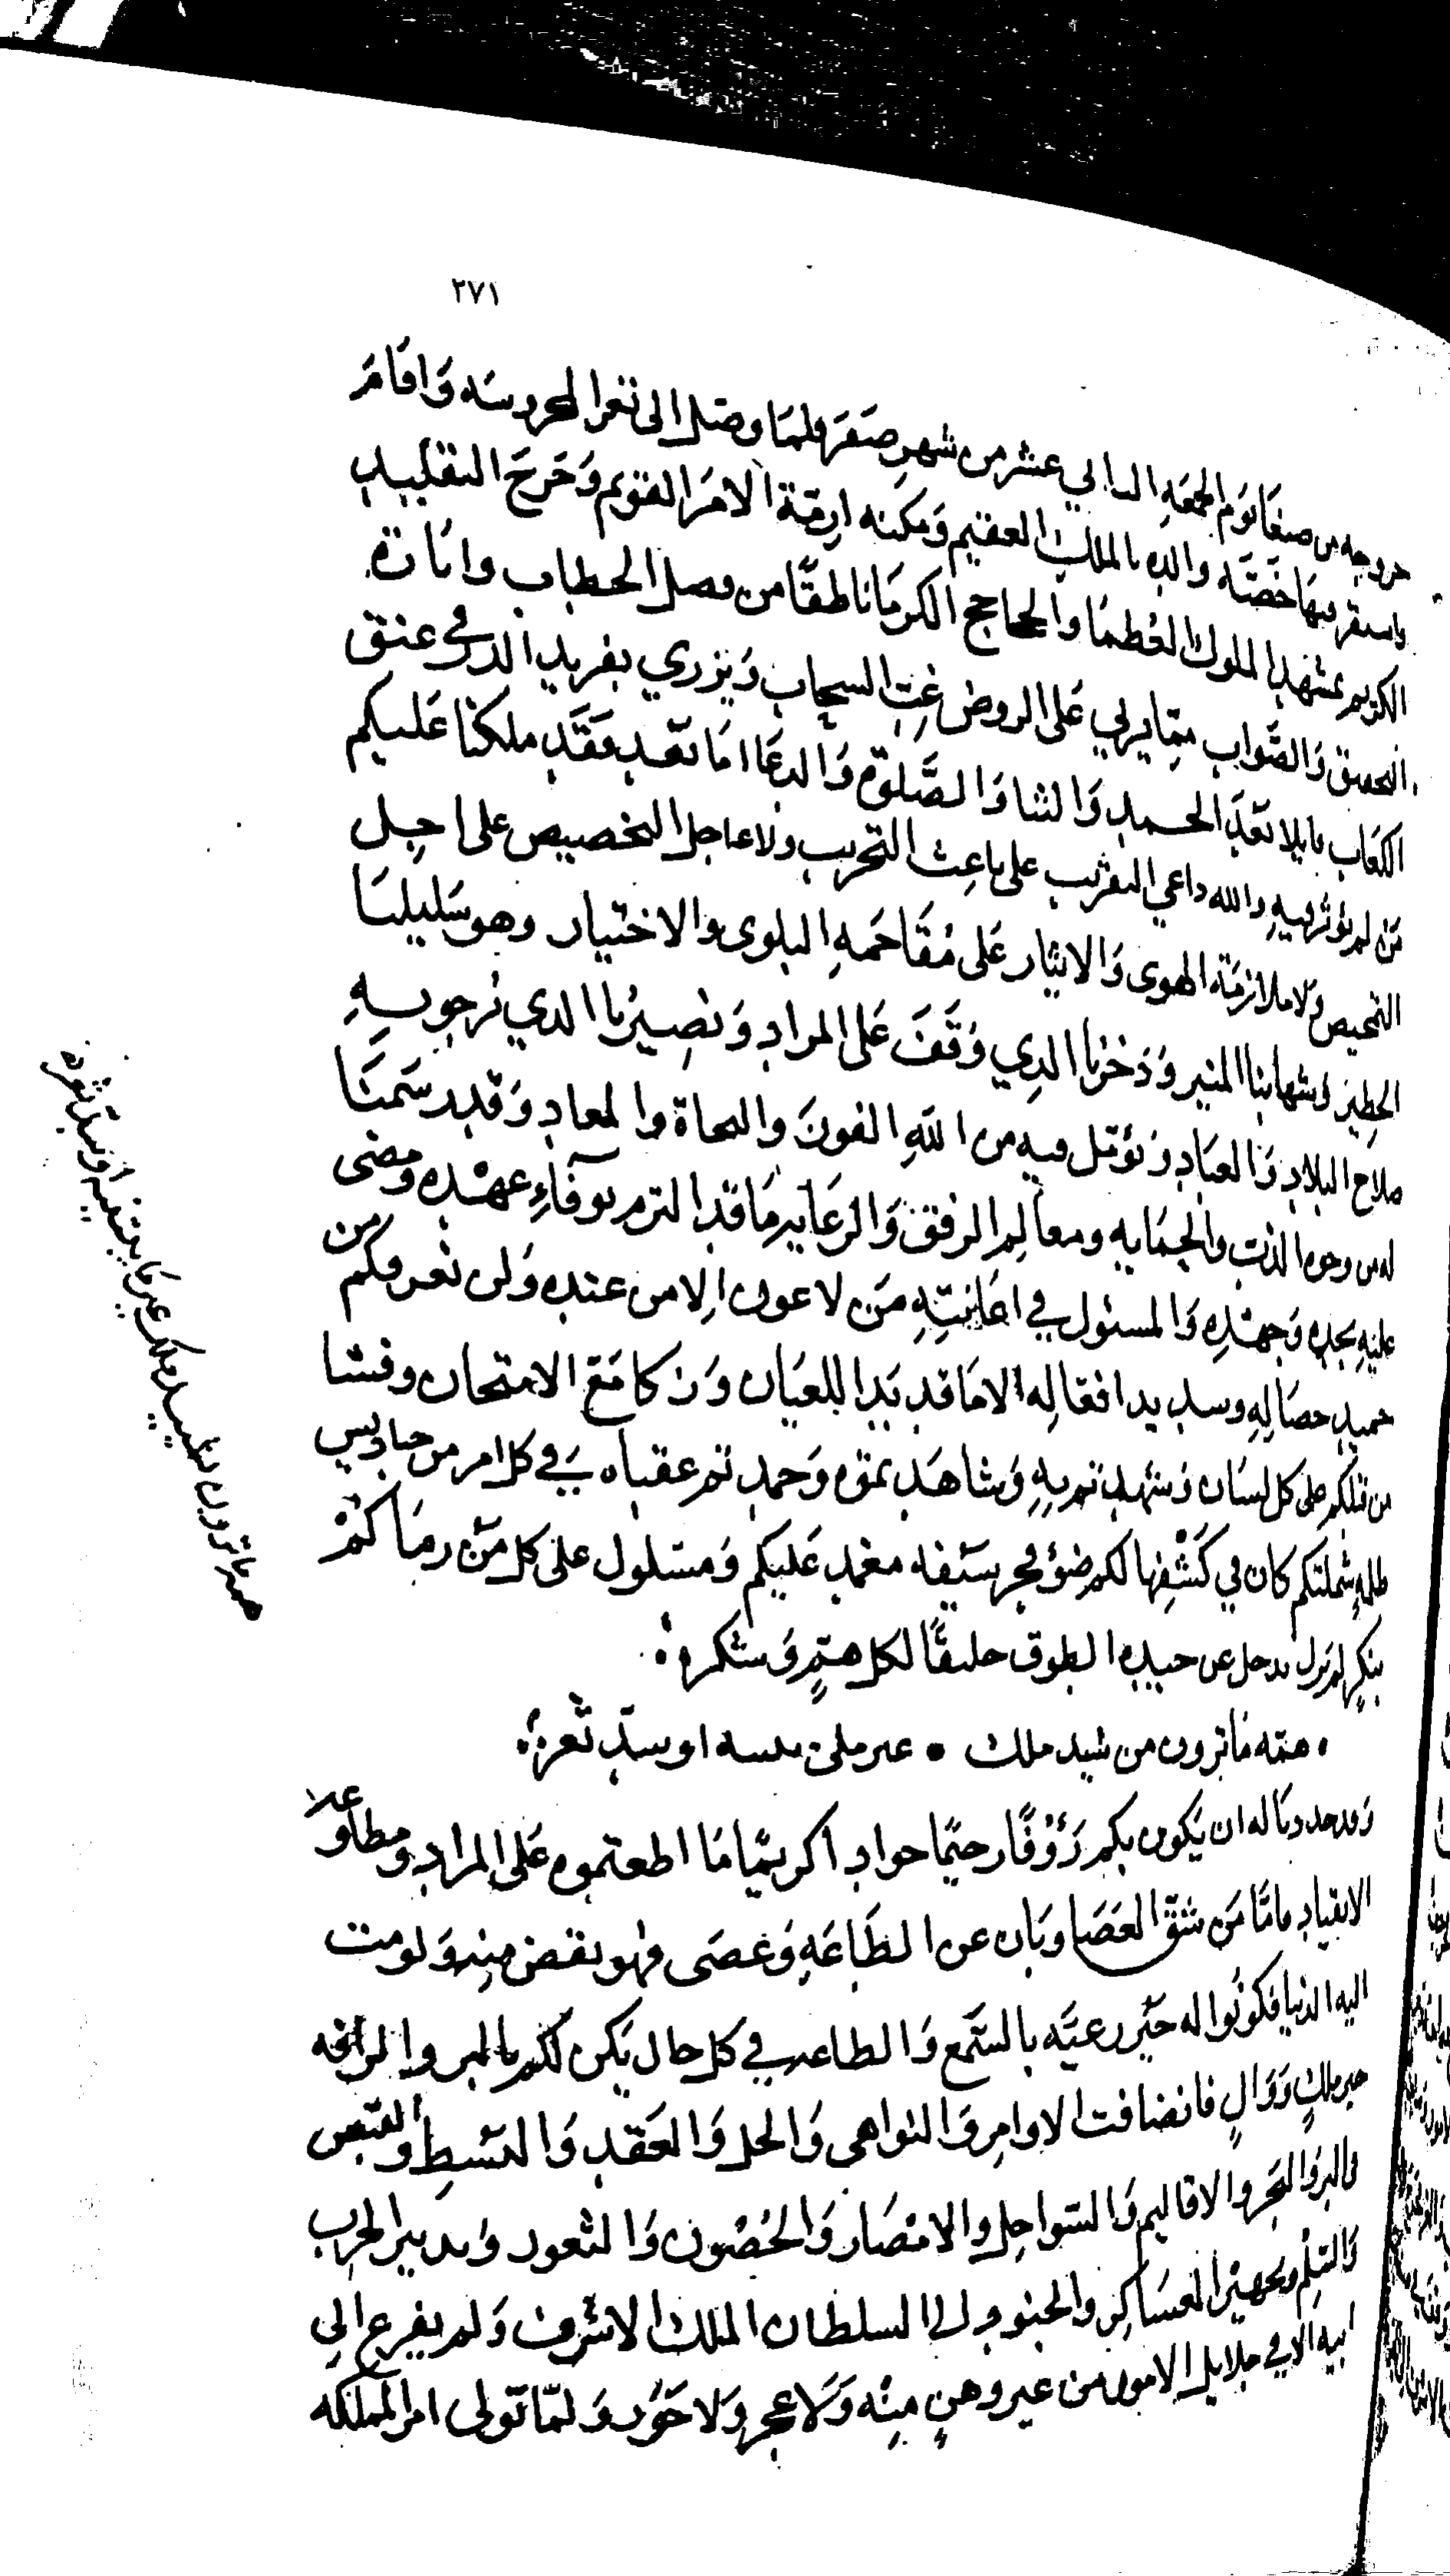 ٢٧١
خروجه من صنعا يوم الجمعه الثاني عشر من شهر صفر فلما وصل الى تعز المحروسه واقام
واستقر فيها خصه والده بالملك العقيم ومكنه ازمة الامر القويم وخرج التقليد
الكريم بمشهد الملوك العظما والجحاجح الكرما ناطقا من فصل الخطاب واثارة
التحقيق والصواب بما يربي على الروض غب السحاب ويزري بفريد الدر في عنق
الكعاب قايلا بعد الحمد والثنا والصلوة والدعا اما بعد فقد ملكنا عليكم
من لم نؤثر فيه والله داعي التقريب على باعث التجريب ولا عاجل التخصيص على اجل
التمحيص ولا ملازمة الهوى والايثار على مقاحمه البلوى والاختيار وهو سليلنا
الخطير وشهابنا المنير وذخرنا الذي وقف على المراد ونصيرنا الذي نرجو به
صلاح البلاد والعباد ونؤمل فيه من الله الفوز والنجاة والمعاد وقد رسمنا
له من وجوه الذب والحمايه ومعالم الرفق والرعايه ما قد التزم بوفاء عهده ومضى
عليه بجده وجهده والمسئول في اعانته من لا عون الا من عنده ولن نعرفكم من
حميد خصاله وسديد افعاله الا ما قد بدا للعيان وزكا مع الامتحان وفشا
من قبلكم على كل لسان وشهد وشاهد وحمد ثم عقباه في كل امر من حناديس
ظلمه شملتكم كان في كشفها لكم ضوء فجر سيفه مغمد عليكم ومسلول على كل من رما كم
لم يزل عن الطوق حليفا لكل هم وشكره
همه ما ترون من شيد ملك غير ملك او سد ثغره
وقد حددنا له ان يكون بكم رؤوفا رحيما جوادا كريما ما اطعتموه على المراد ومطاوعا
الانقياد فاما من شق العصا وبان عن الطاعه وعصى فهو يقض منه ولو مت
اليه الدنيا فكونوا له خير رعيه بالسمع والطاعه في كل حال يكن لكم بالبر والرافه
خير ملك ووال فانضافت الاوامر والنواهي والحل والعقد والبسط والقبض
في البر والبحر والاقاليم والسواحل والامصار والحصون والثغور وتدبير الحرب
والسلم وتجهيز العساكر والجنود الى السلطان الملك الاشرف ولم يفرع الي
ابيه الا في جلايل الامور من غير وهن منه ولا عجز ولا خور ولما تولى امر المملكه